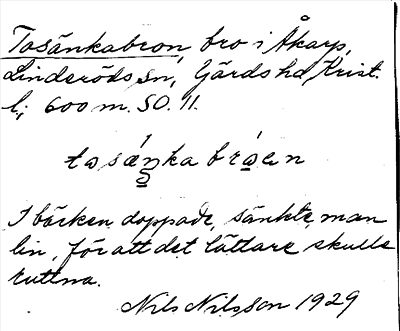 Tosänkabron, bro i Åkarp,
Linderöds sn, Gärds hd, Krist.
l.; 600 m. SO. 11.
tosäŋka broen
I bäcken doppade, sänkte, man
lin, för att det lättare skulle
ruttna.
Nils Nilsson 1929